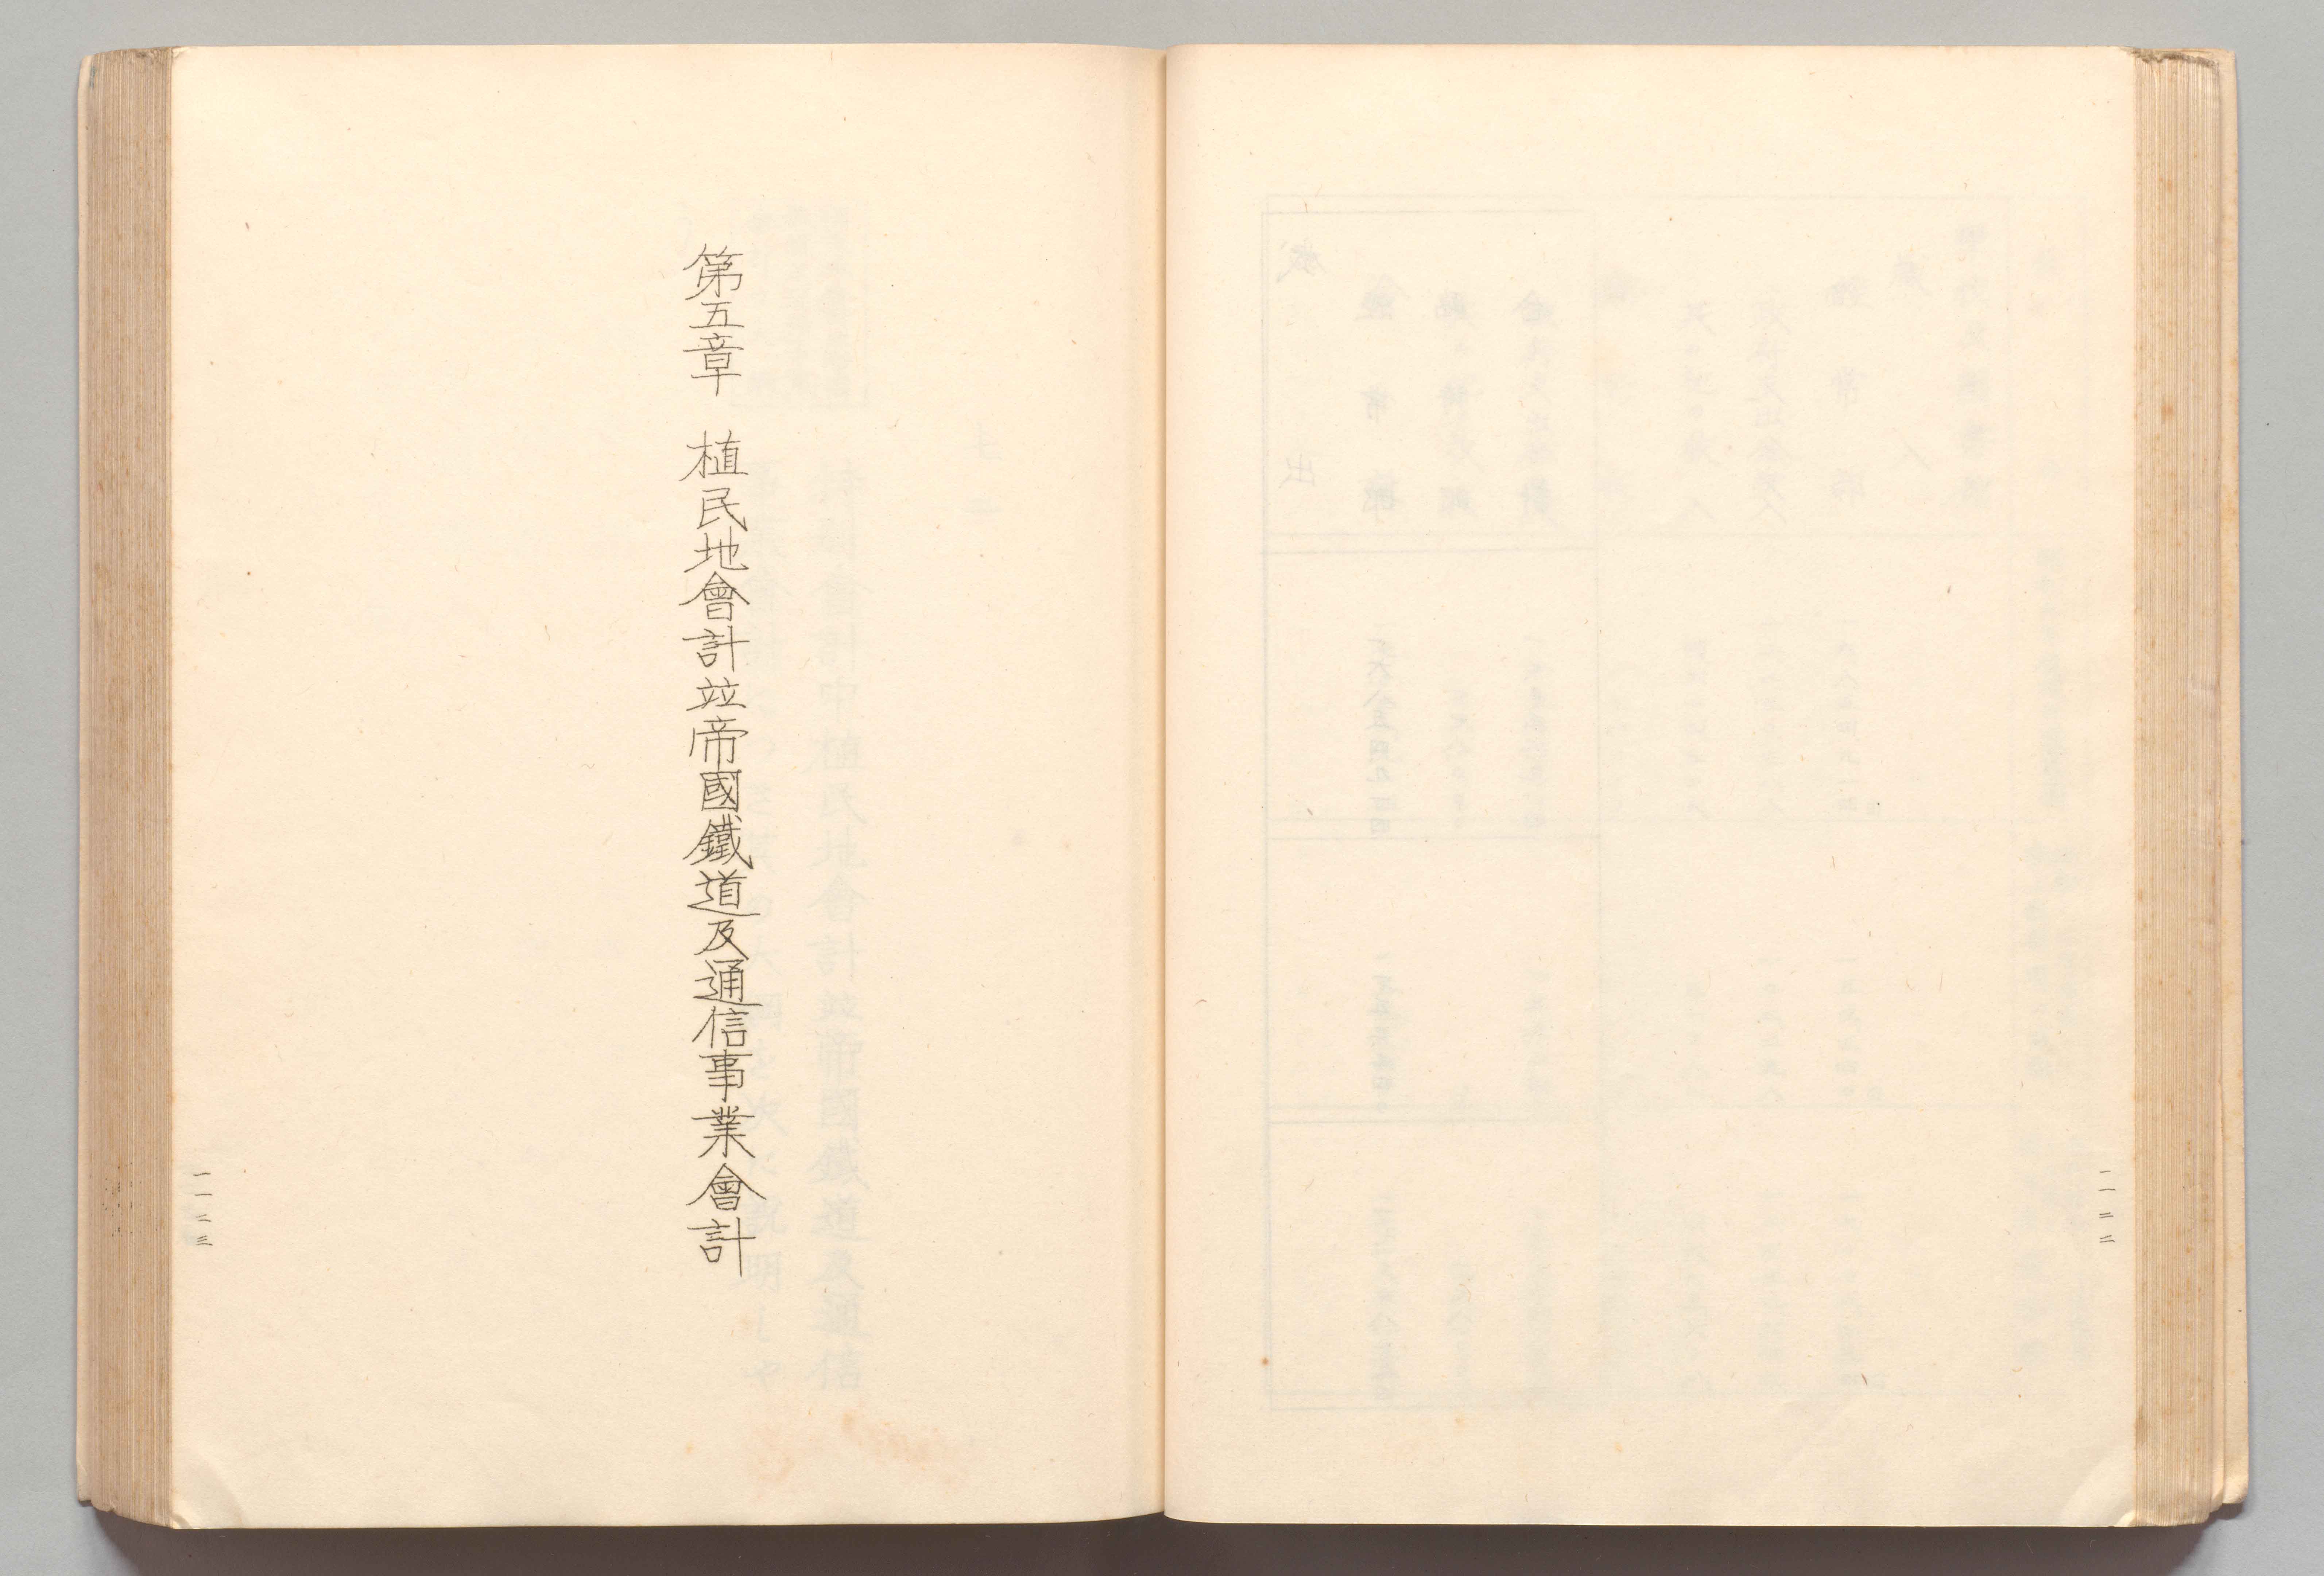 一一二二
第五章　植民地會計竝帝國鐵道及通信事業會計
一一二三